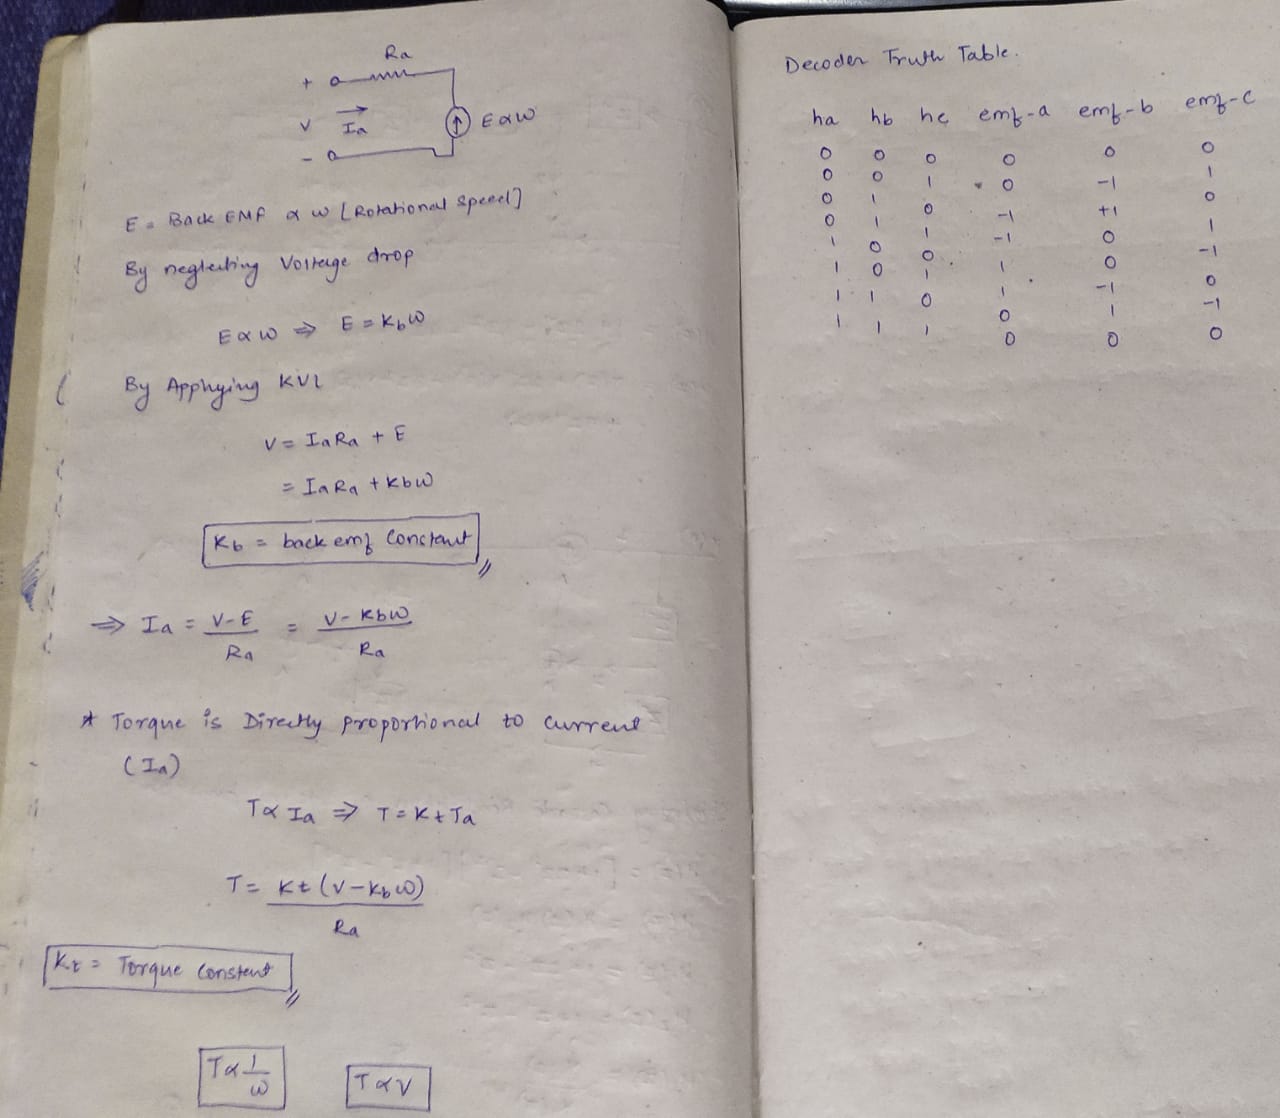 Ra
+
V
Ia
E ∝ ω
-
E = Back EMF ∝ ω [Rotational Speed]
By neglecting Voltage drop
E ∝ ω ⇒ E = Kbω
By Applying KVL
V = IaRa + E
= IaRa + Kbω
Kb = back emf Constant
⇒ Ia = V-E / Ra = V - Kbω / Ra
* Torque is Directly proportional to current
(Ia)
T ∝ Ia ⇒ T = Kt Ta
T = Kt (V - Kbω) / Ra
Kt = Torque Constant
T ∝ 1/ω T ∝ V
Decoder Truth Table.
ha hb hc emf-a emf-b emf-c
0 0 0 0 0 0
0 0 1 0 -1 1
0 1 0 -1 +1 0
0 1 1 -1 0 1
1 0 0 1 0 -1
1 0 1 1 -1 0
1 1 0 0 1 -1
1 1 1 0 0 0